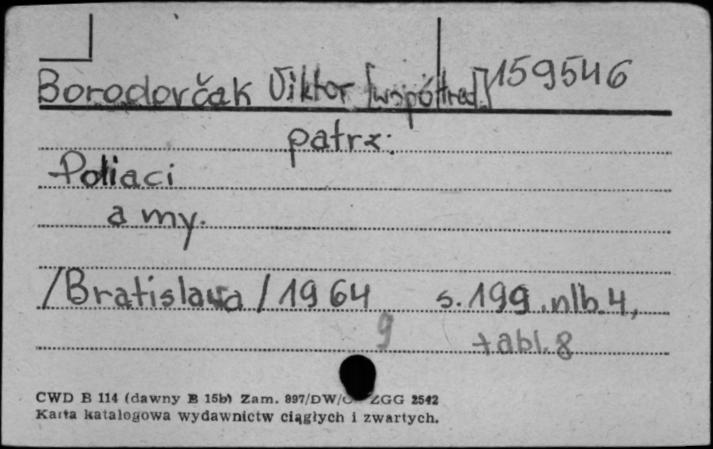 Borodovčak Viktor [współred.] 159546
patrz:
Poliaci
a my.
/Bratislava/ 1964 s. 199, nlb. 4,
9 tabl. 8
CWD B 114 (dawny B 15b) Zam. 897/DW/ ZGG 2542
Karta katalogowa wydawnictw ciągłych i zwartych.